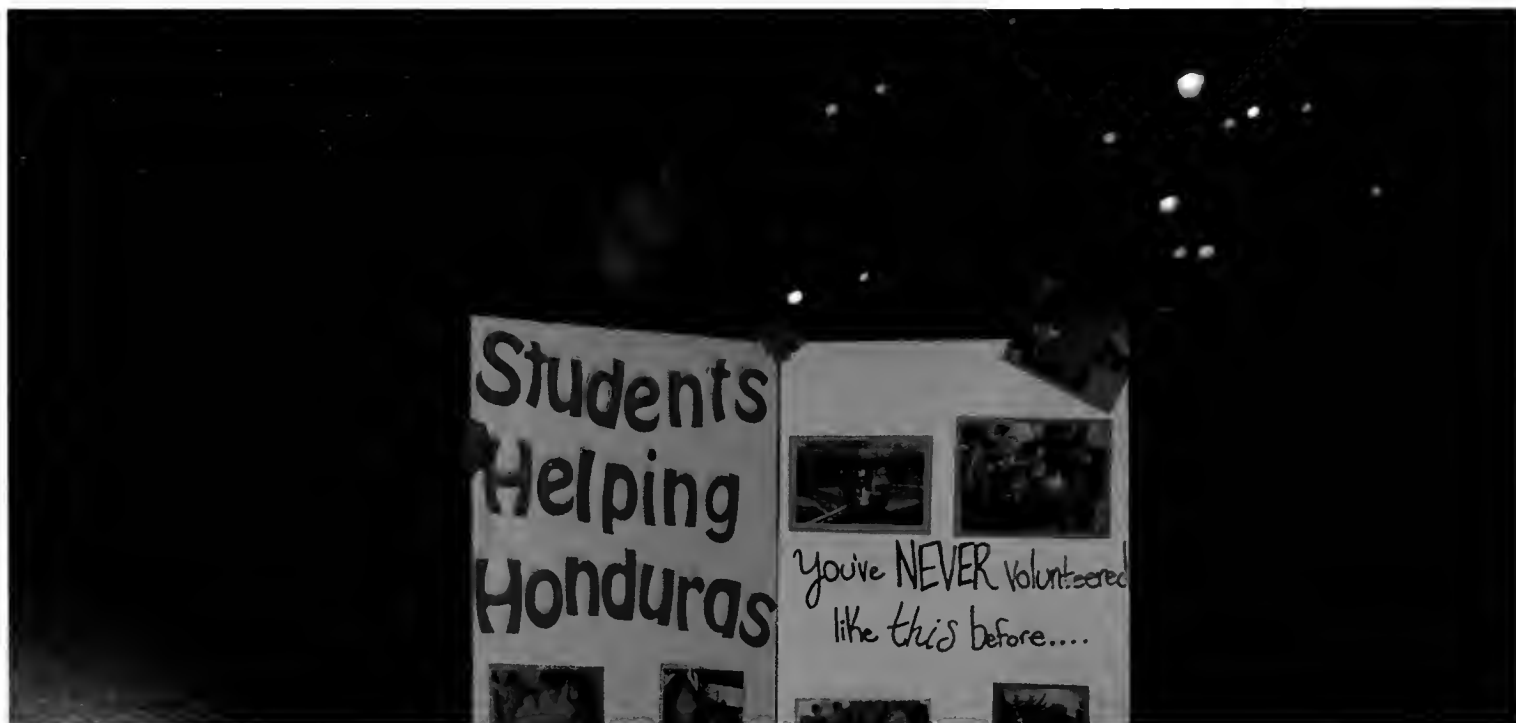 Students
Helping
Honduras
You've NEVER volunteered
like this before....